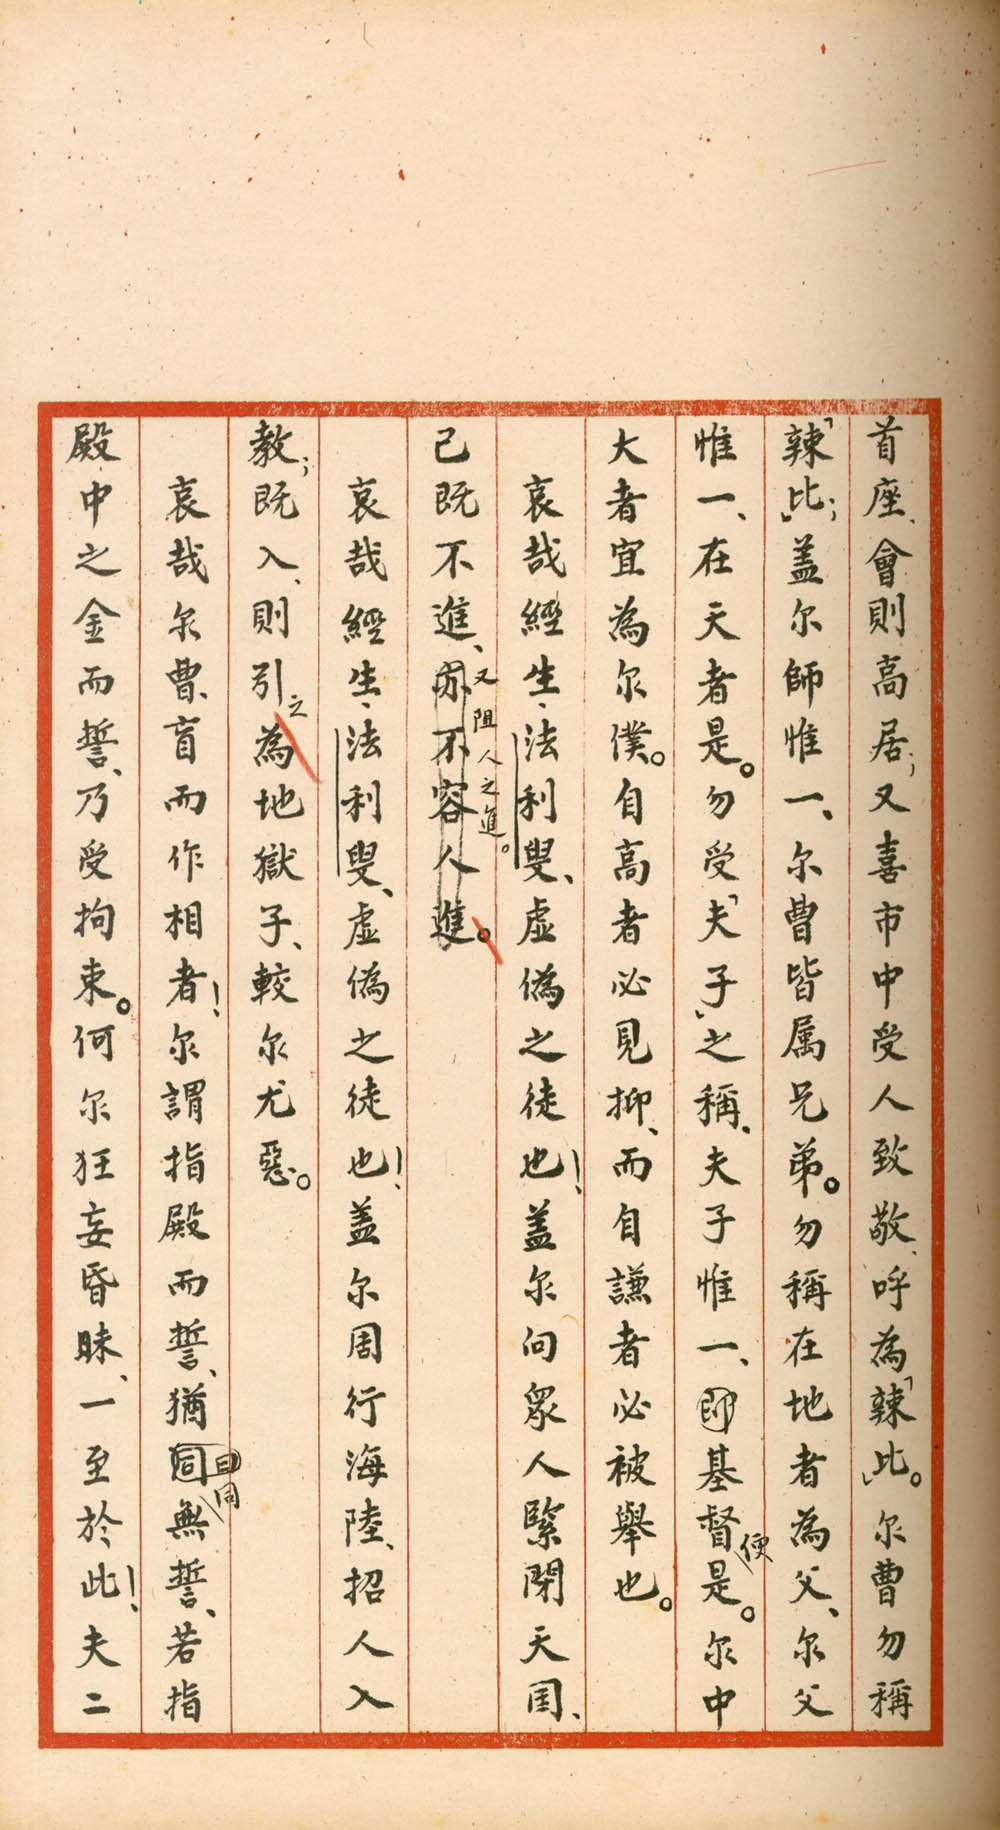 首座、會則高居；又喜市中受人致敬、呼為「辣比」。尔曹勿稱
「辣比」；盖尔師惟一、尔曹皆属兄弟。勿稱在地者為父、尔父
惟一、在天者是。勿受「夫子」之稱、夫子惟一、即基督便是。尔中
大者宜為尔僕。自高者必見抑、而自謙者必被舉也。
哀哉經生、法利叟、虛偽之徒也！盖尔向衆人緊閉天国、
己既不進、亦不容人進。
又阻人之進。
哀哉經生、法利叟、虛偽之徒也！盖尔周行海陸、招人入
教；既入、則引之為地獄子、較尔尤惡。
哀哉尔曹、盲而作相者！尔謂指殿而誓、猶同無誓、若指
曰同
殿中之金而誓、乃受拘束。何尔狂妄昏昧、一至於此！夫二